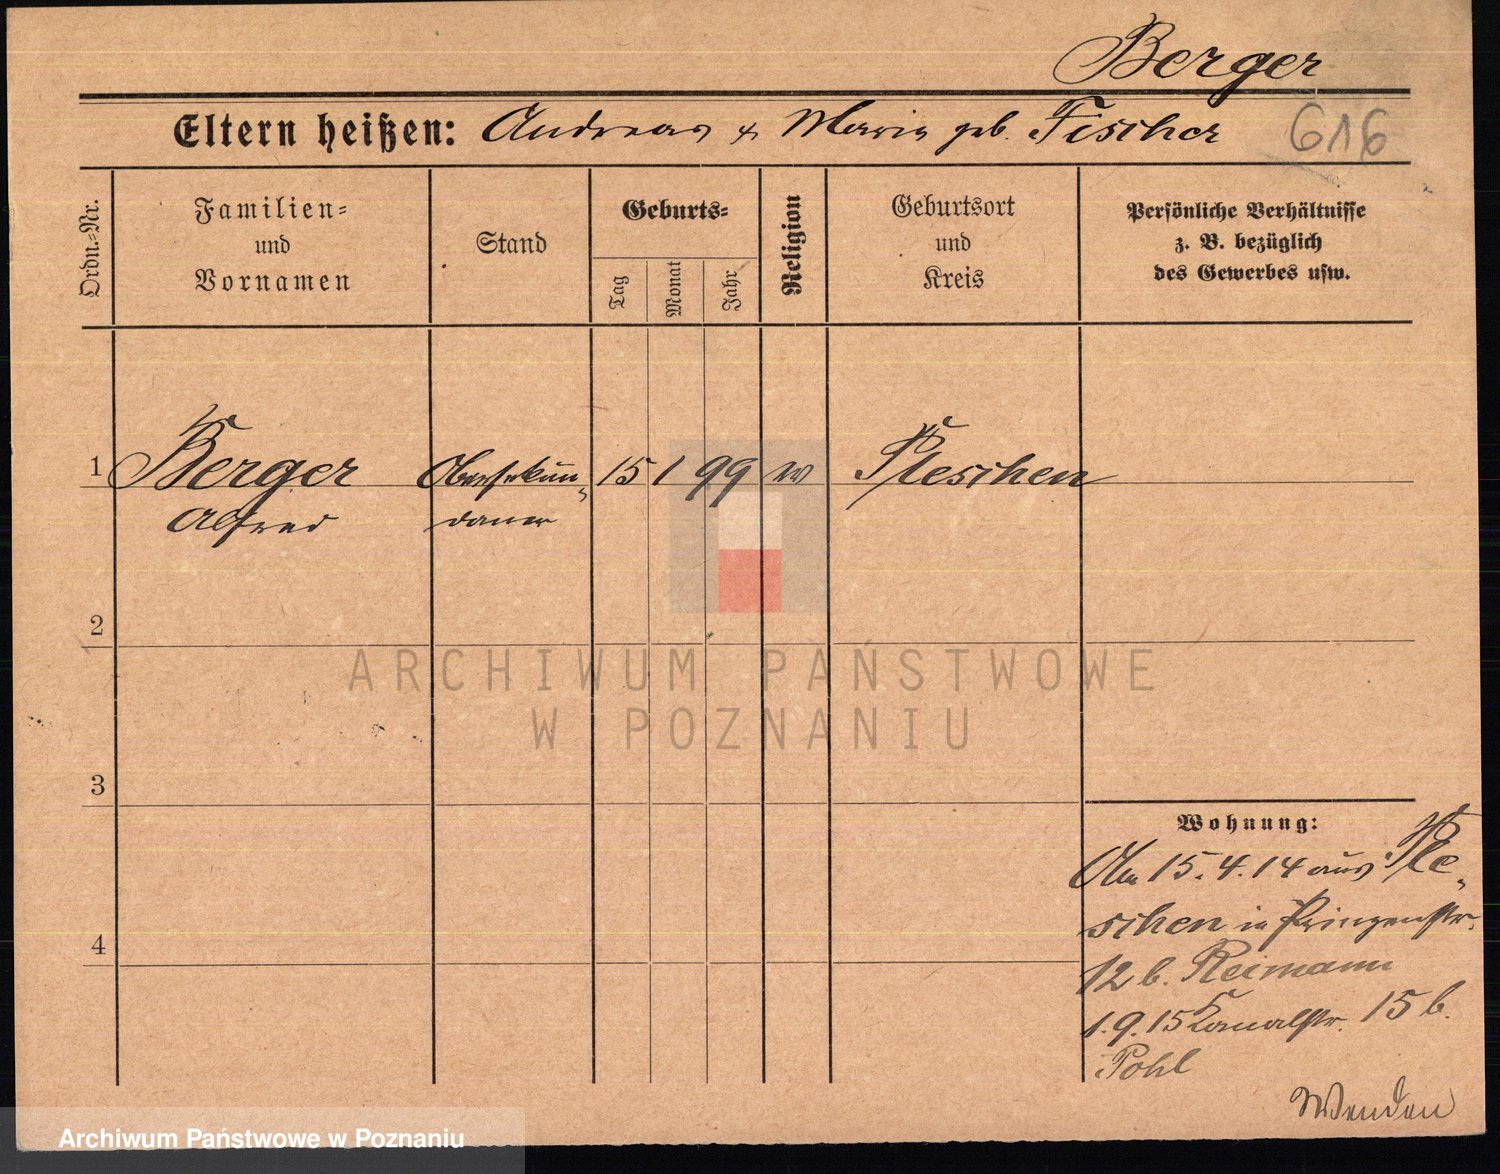 Berger
Eltern heißen: Andreas & Maria geb. Fischer
616
Ordn.-Nr.
Familien-
und
Vornamen
Stand
Geburts-
Tag
Monat
Jahr
Religion
Geburtsort
und
Kreis
Persönliche Verhältnisse
z. B. bezüglich
des Gewerbes usw.
1 Berger Obersekun- 15 1 99 Pleschen
Alfred daner
2
ARCHIWUM PAŃSTWOWE
W POZNANIU
3
Wohnung:
15.4.14 aus Ple-
schen in Prinzenstr.
12 b. Reimann
1.9.15 Kanalstr. 15 b.
Pohl
4
Wenden
Archiwum Państwowe w Poznaniu